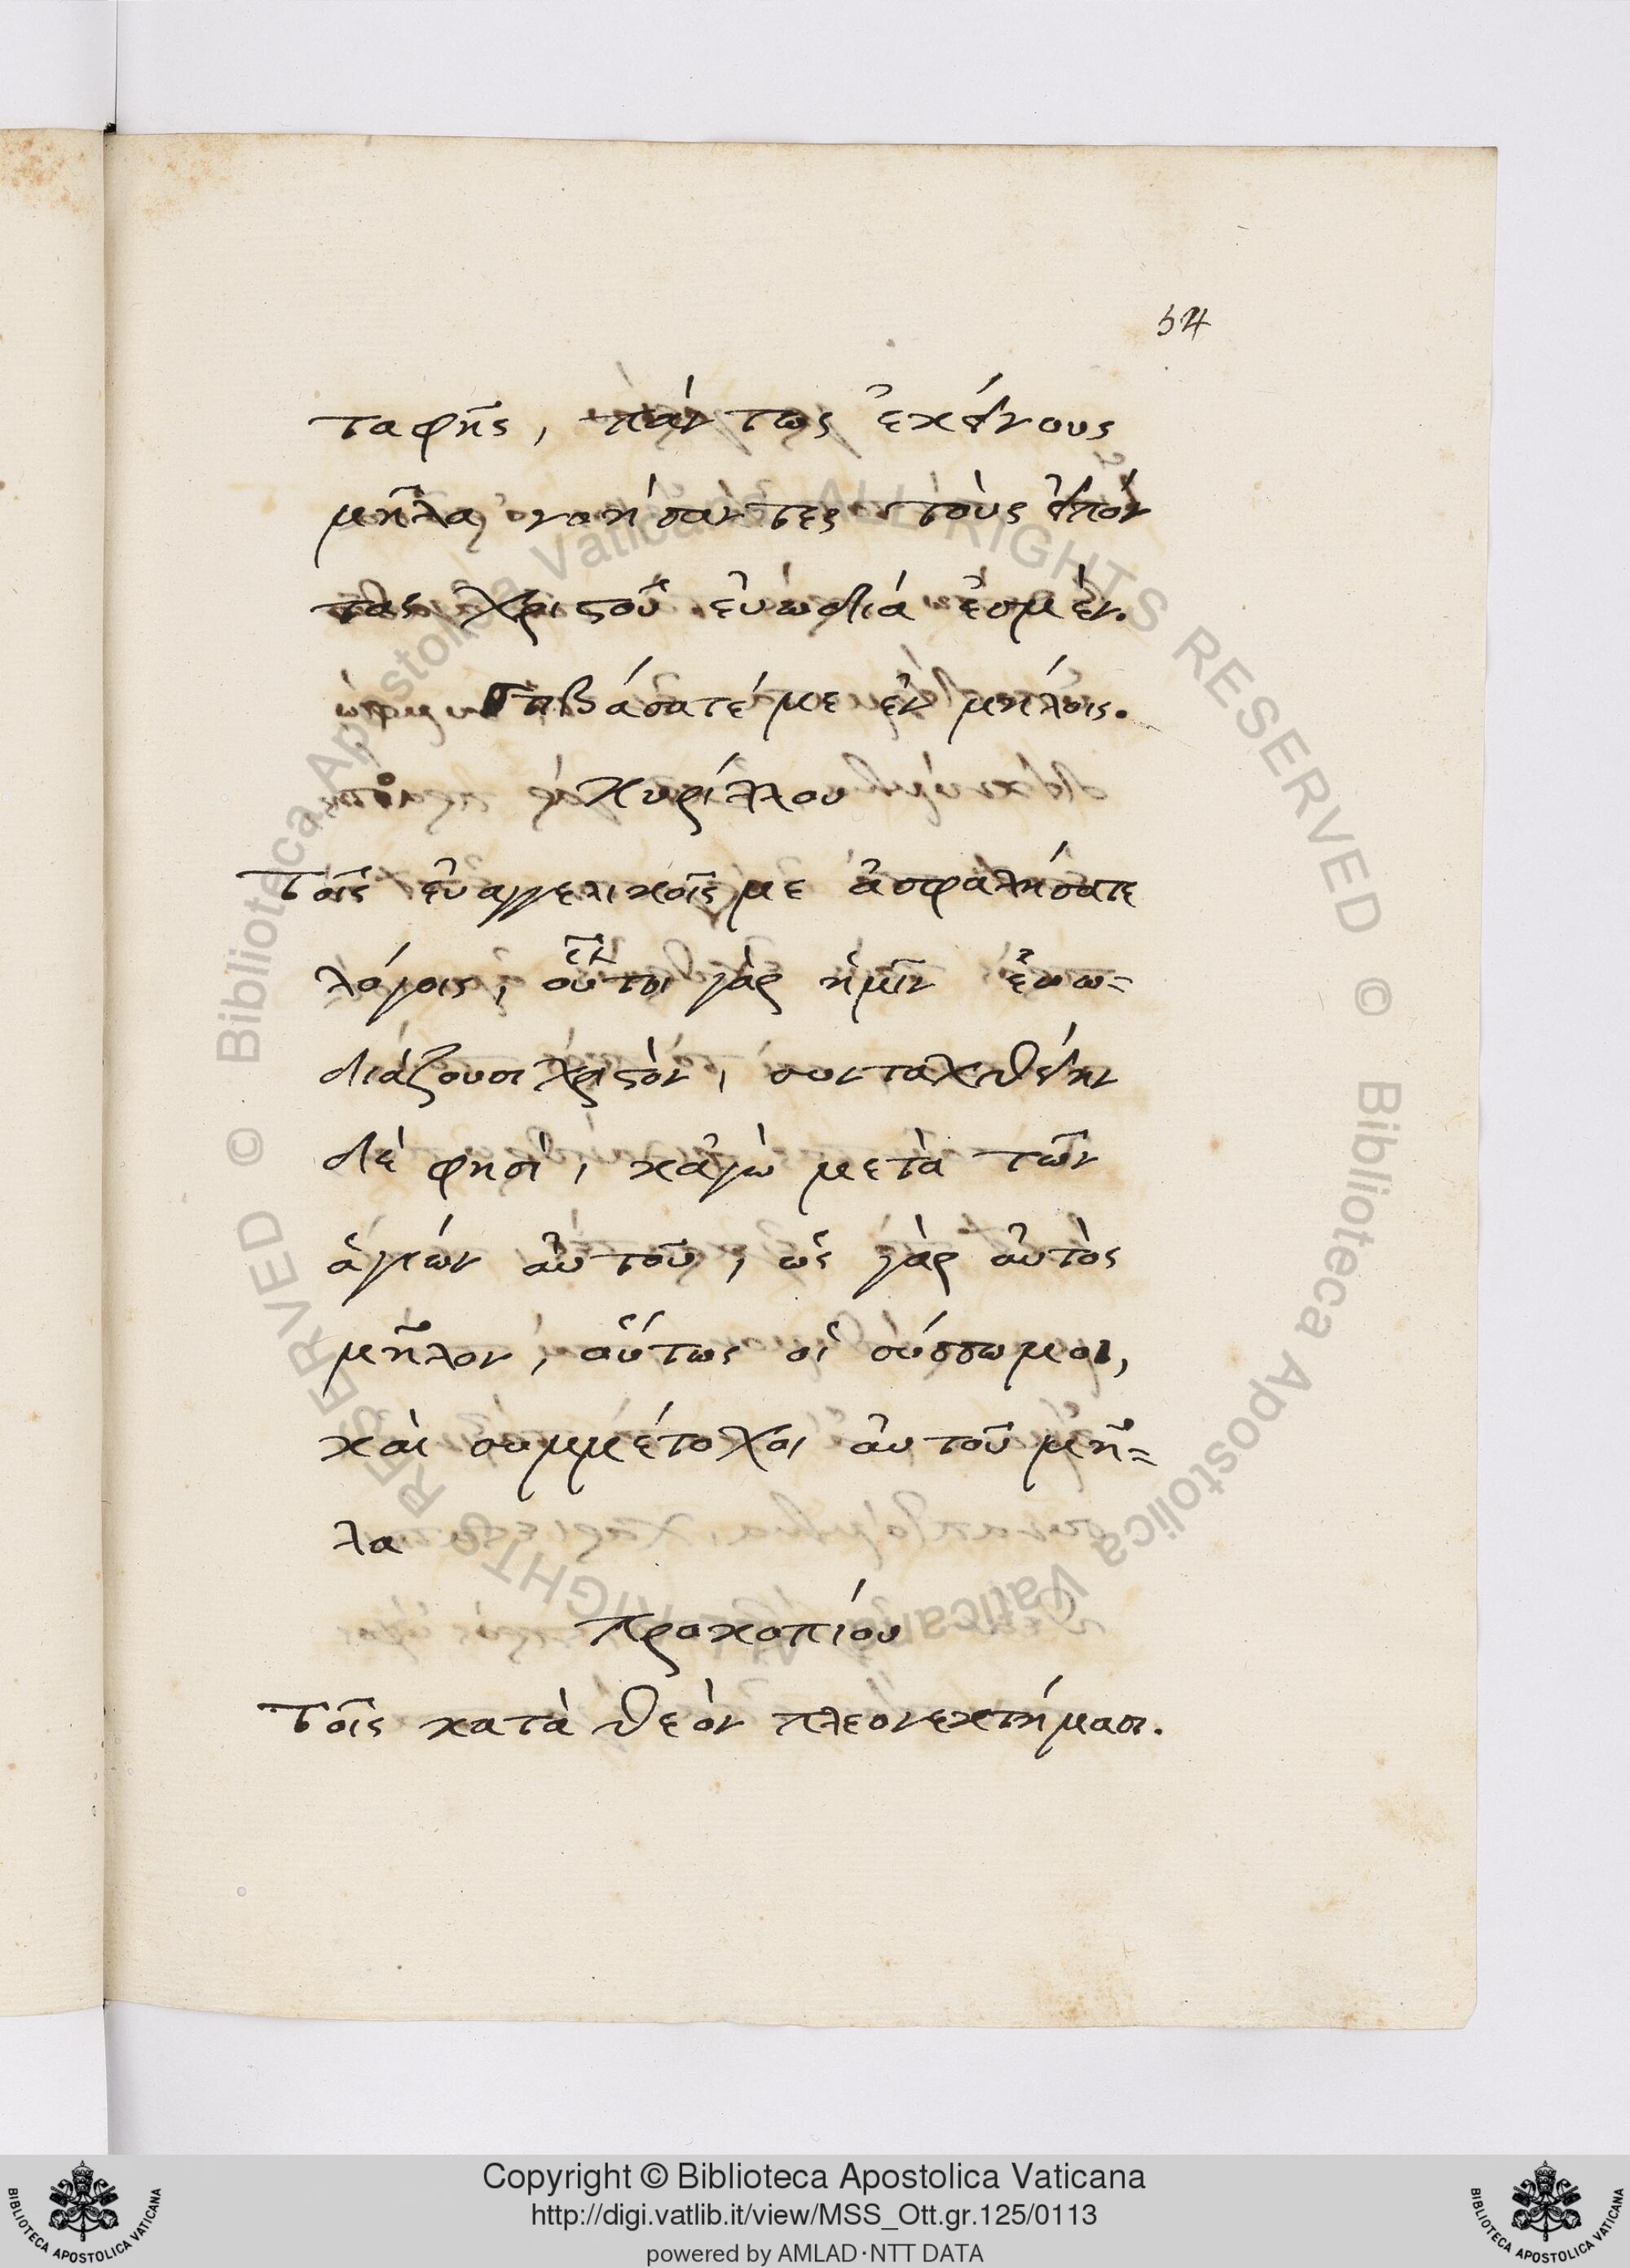 54
ταφῆς, πάντως ἐκείνους
μῆλα νοήσαντες τοὺς εἰπόν
τας Χριστοῦ εὐωδία ἐσμέν.
Στιβάσατέ με ἐν μήλοις.
Κυρίλλου
Τοῖς εὐαγγελικοῖς με ἀσφαλήσατε
λόγοις, οὗτοι γὰρ ἡμῖν εὐω=
διάζουσι Χριστὸν, συνταχθείην
δὲ φησὶ, κἀγὼ μετὰ τῶν
ἁγίων αὐτοῦ, ὡς γὰρ αὐτὸς
μῆλον, οὕτως οἱ σύσσωμοι,
καὶ συμμέτοχοι αὐτοῦ μῆ=
λα
Προκοπίου
Τοῖς κατὰ θεὸν πλεονεκτήμασι.
Copyright © Biblioteca Apostolica Vaticana
http://digi.vatlib.it/view/MSS_Ott.gr.125/0113
powered by AMLAD·NTT DATA
BIBLIOTECA APOSTOLICA VATICANA
BIBLIOTECA APOSTOLICA VATICANA
© Biblioteca Apostolica Vaticana ALL RIGHTS RESERVED © Biblioteca Apostolica Vaticana ALL RIGHTS RESERVED